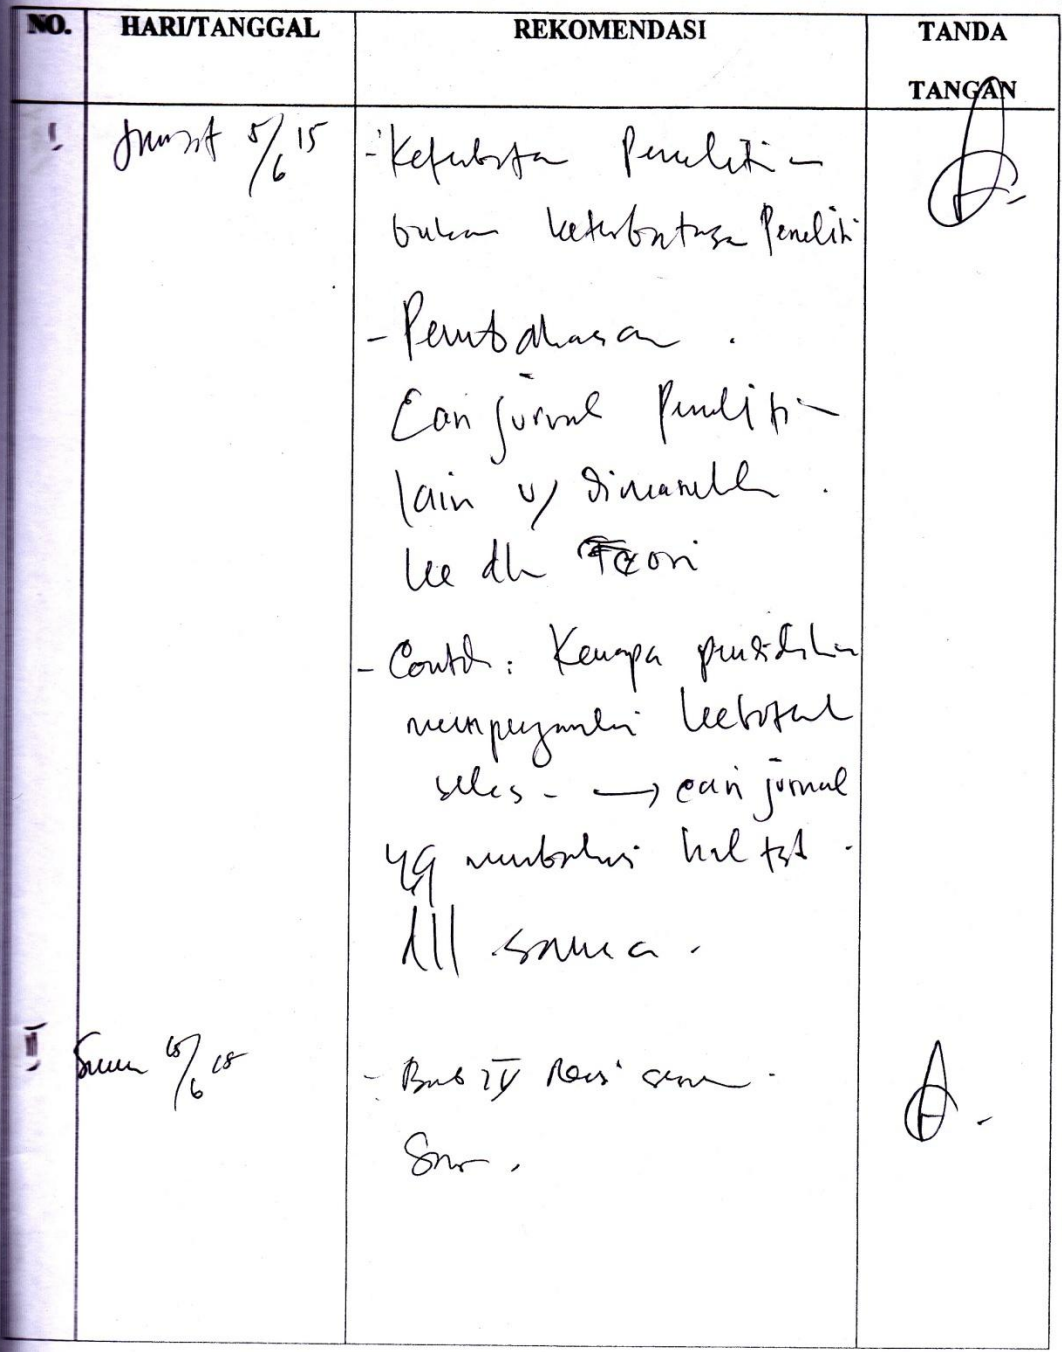 NO. HARI/TANGGAL REKOMENDASI TANDA TANGAN
Jum'at 5/6 15
- Keterbatasan Penelitian
bukan keterbatasan Peneliti
- Pembahasan.
Cari jurnal Penelitian
lain u/ dimasukkan.
ke dlm Teori
- Contoh: Kenapa pendidikan
mempengaruhi
→ cari jurnal
yg membahas hal tsb.
dll sama.
Senin /6 15
- Bab IV Revisi